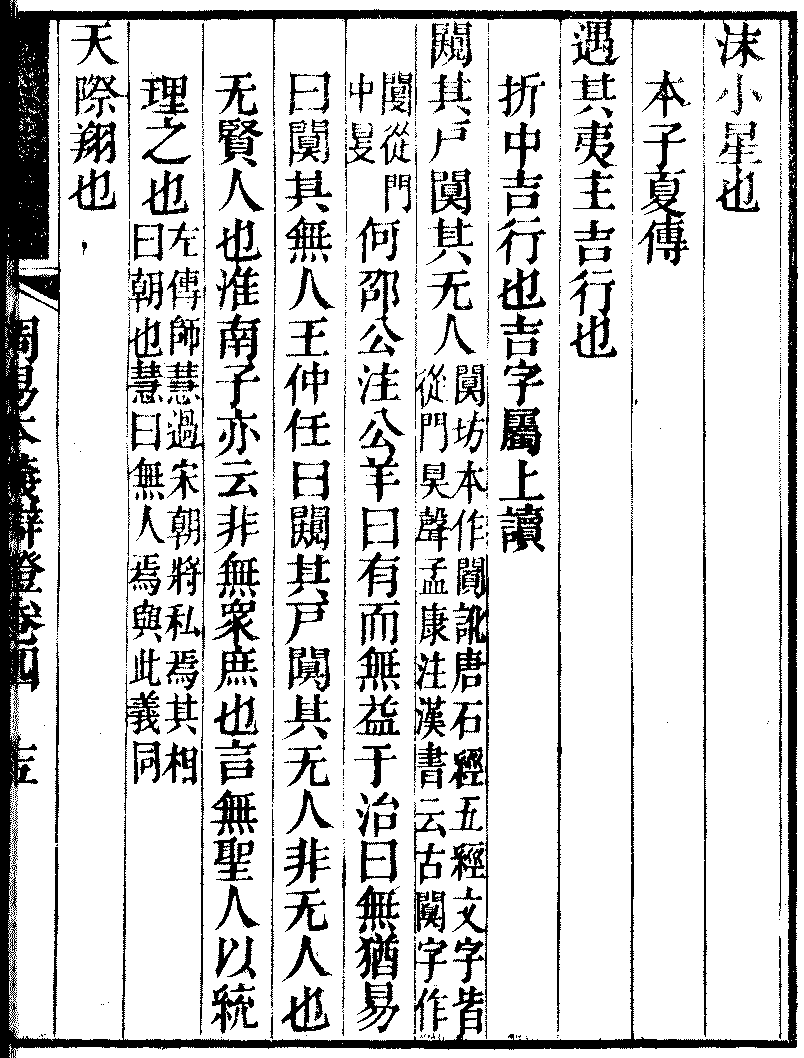 沫小星也
本子夏傳
遇其夷主吉行也
折中吉行也吉字屬上讀
闚其戸闃其无人
闃坊本作闐訛唐石經五經文字皆
從門狊聲孟康注漢書云古闃字作
從門
中旻
何邵公注公羊曰有而無益于治曰無猶易
曰闃其無人王仲任曰闚其戸闃其无人非无人也
无賢人也淮南子亦云非無衆庶也言無聖人以統
理之也
左傳師慧過宋朝將私焉其相
曰朝也慧曰無人焉與此義同
天際翔也
周易本義辯證卷四